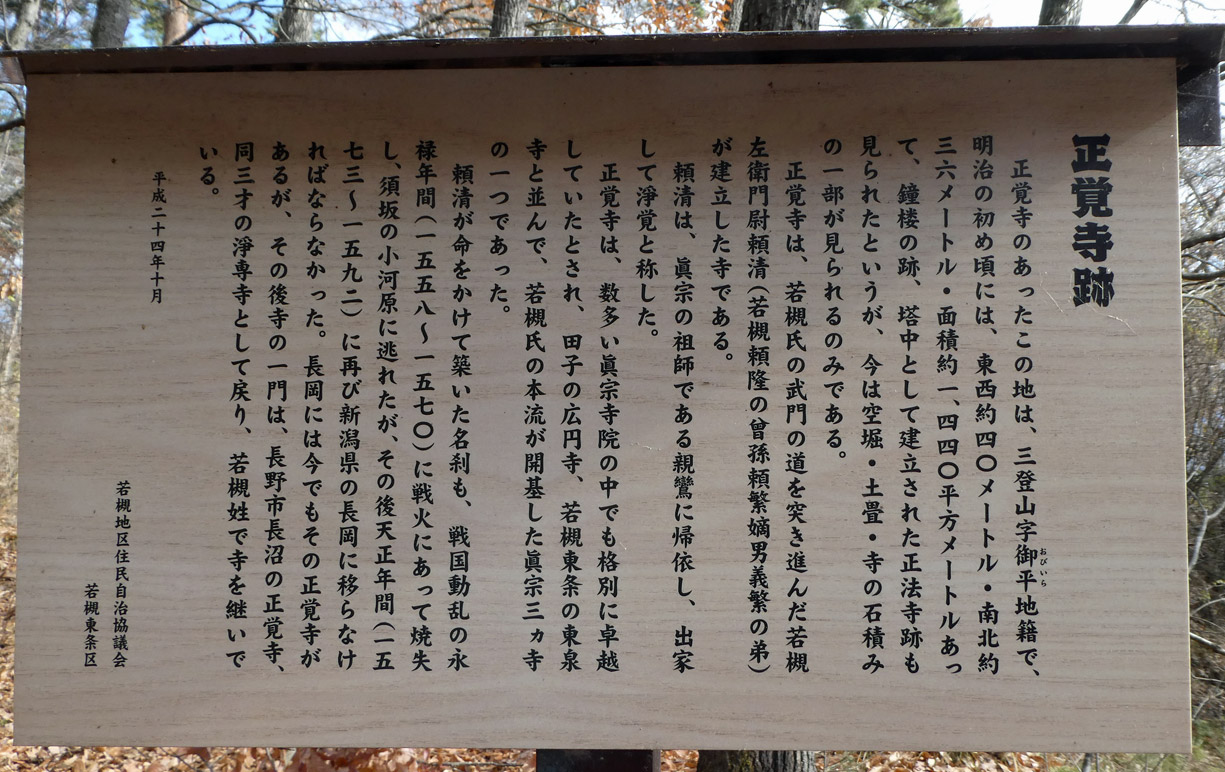 正覚寺跡
正覚寺のあったこの地は、三登山字御平地籍で、
おびいら
明治の初め頃には、東西約四〇メートル・南北約
三六メートル・面積約一、四四〇平方メートルあっ
て、鐘楼の跡、塔中として建立された正法寺跡も
見られたというが、今は空堀・土畳・寺の石積み
の一部が見られるのみである。
正覚寺は、若槻氏の武門の道を突き進んだ若槻
左衛門尉頼清(若槻頼隆の曾孫頼繁嫡男義繁の弟)
が建立した寺である。
頼清は、眞宗の祖師である親鸞に帰依し、出家
して淨覚と称した。
正覚寺は、数多い眞宗寺院の中でも格別に卓越
していたとされ、田子の広円寺、若槻東条の東泉
寺と並んで、若槻氏の本流が開基した眞宗三ヵ寺
の一つであった。
頼清が命をかけて築いた名刹も、戦国動乱の永
禄年間(一五五八〜一五七〇)に戦火にあって焼失
し、須坂の小河原に逃れたが、その後天正年間(一五
七三〜一五九二)に再び新潟県の長岡に移らなけ
ればならなかった。長岡には今でもその正覚寺が
あるが、その後寺の一門は、長野市長沼の正覚寺、
同三才の淨専寺として戻り、若槻姓で寺を継いで
いる。
平成二十四年十月
若槻地区住民自治協議会
若槻東条区